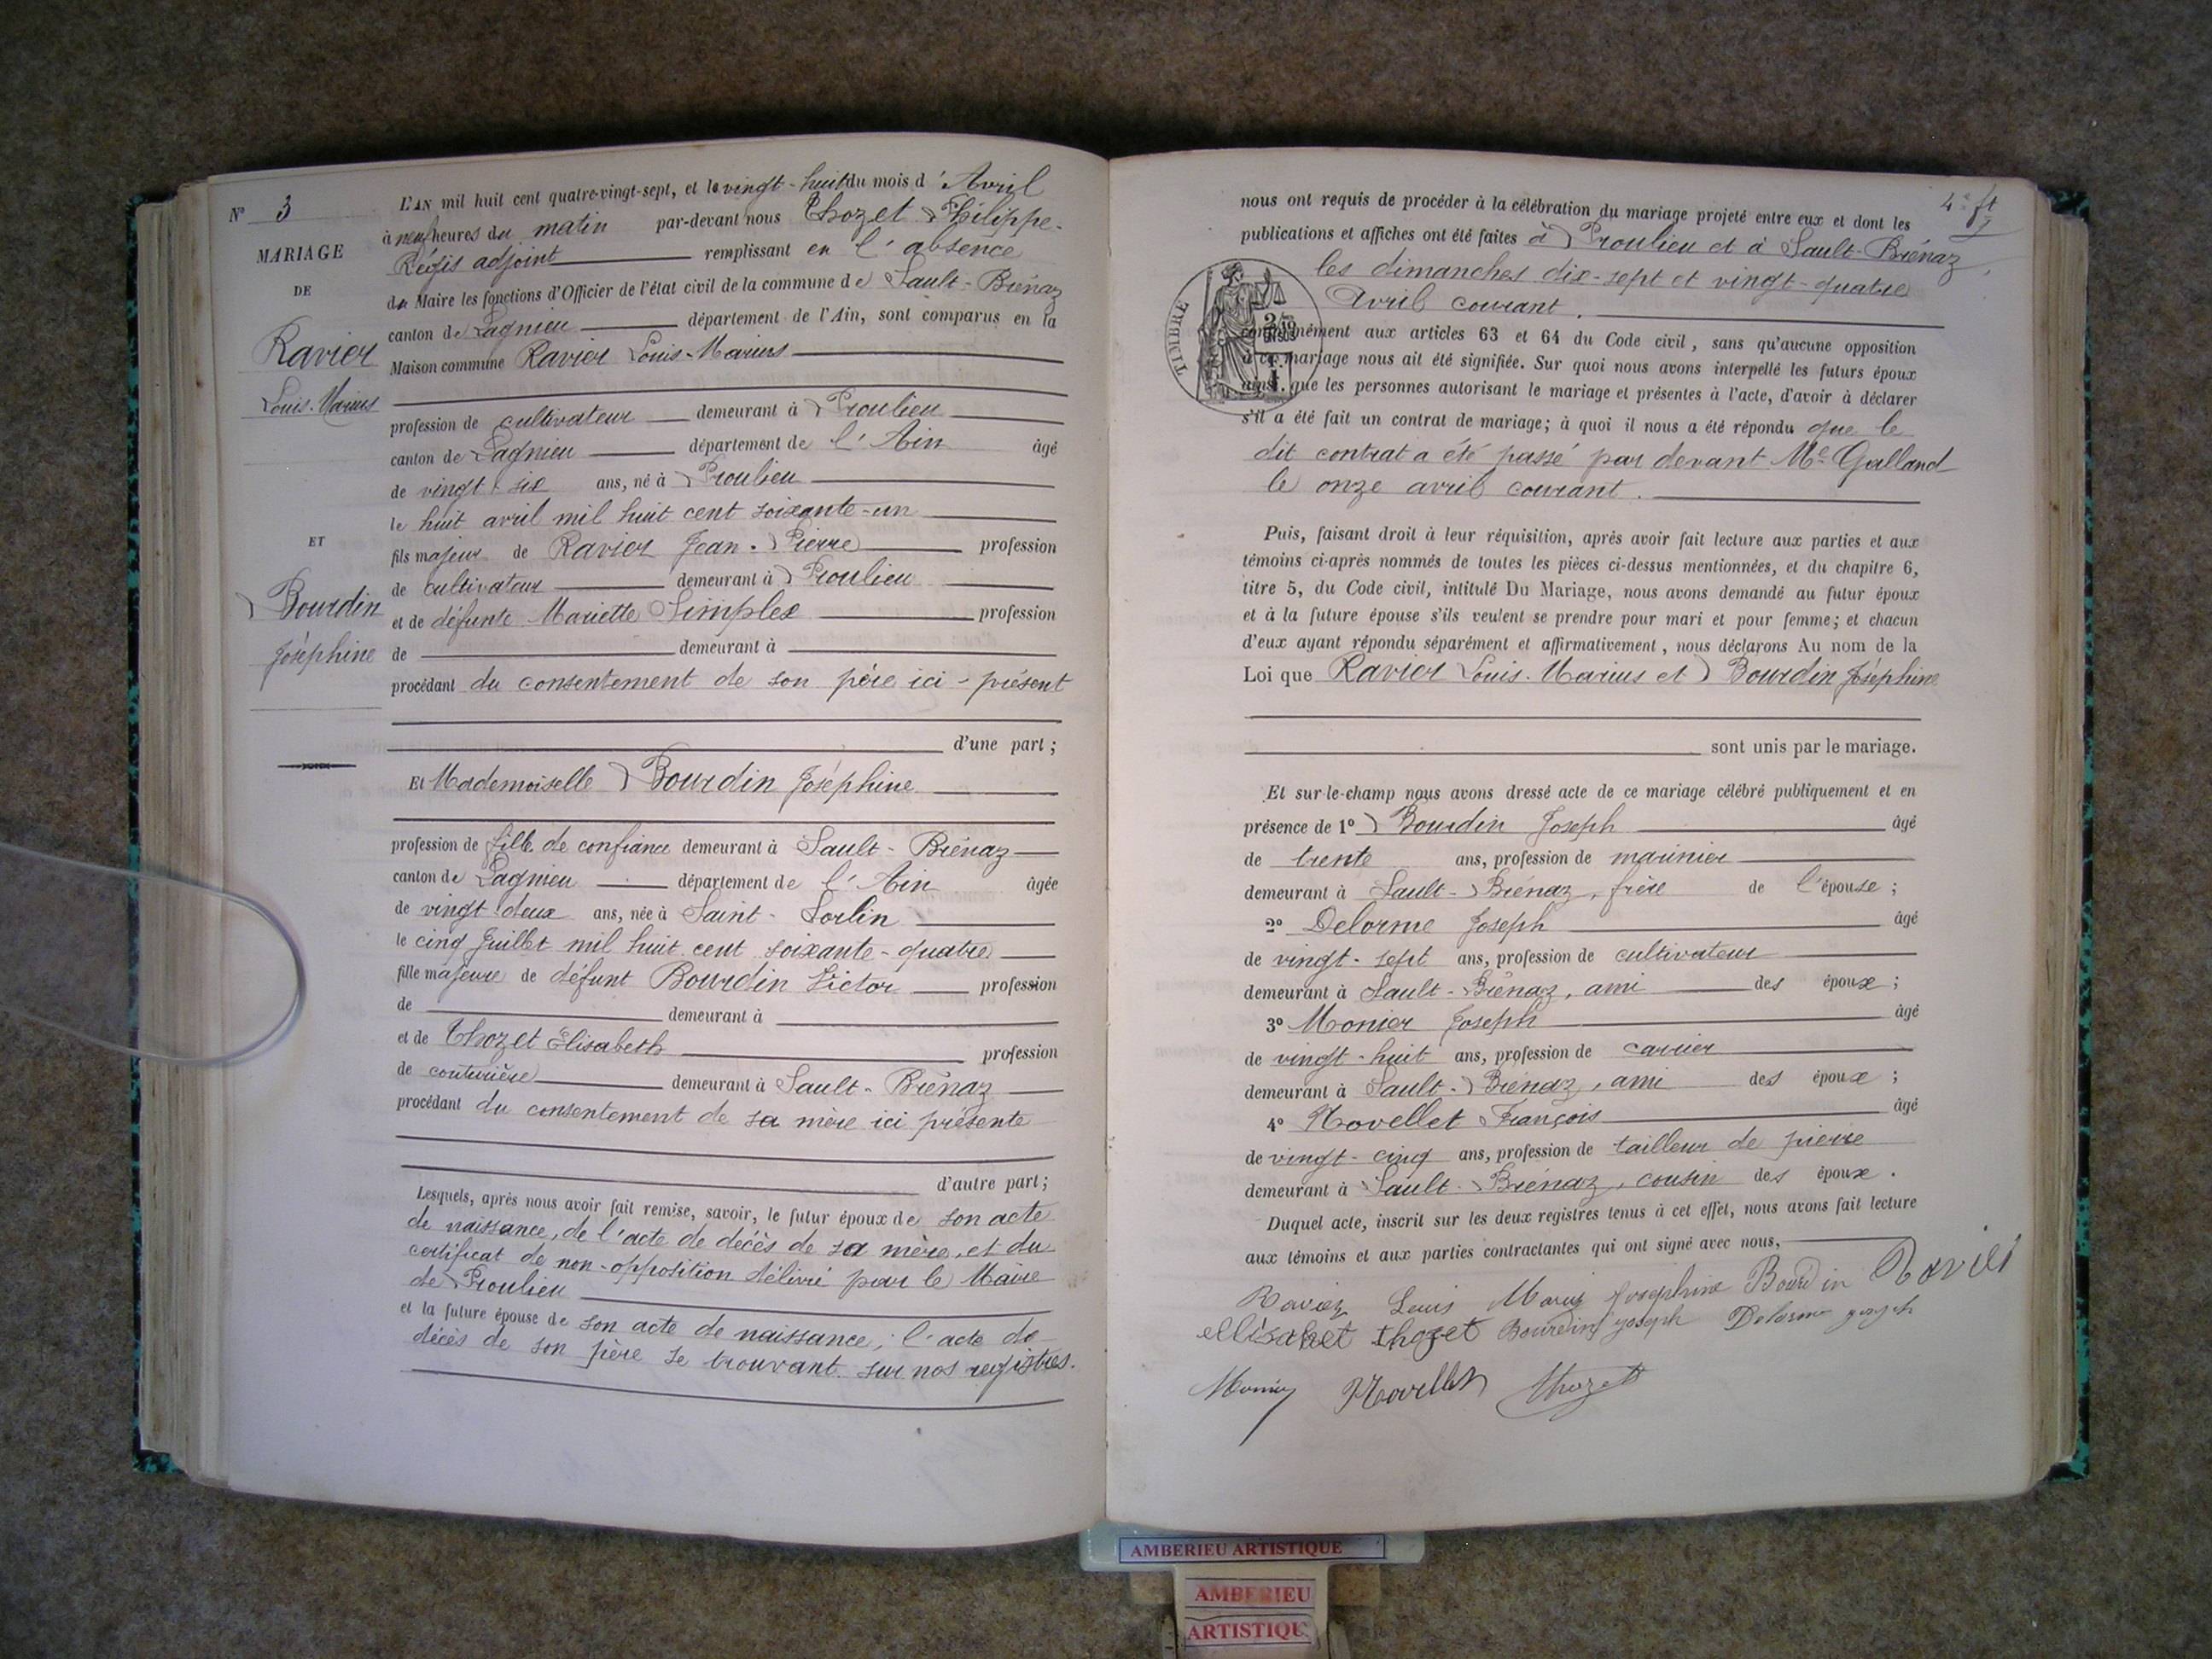 N° 3
MARIAGE
DE
Ravier
Louis-Marius
ET
Bourdin
Joséphine
L'AN mil huit cent quatre-vingt-sept, et le vingt-huit du mois d'Avril
à neuf heures du matin par-devant nous Thozet Philippe-
Régis adjoint remplissant en l'absence
du Maire les fonctions d'Officier de l'état civil de la commune de Sault-Brénaz
canton de Lagnieu département de l'Ain, sont comparus en la
Maison commune Ravier Louis-Marius
profession de cultivateur demeurant à Proulieu
canton de Lagnieu département de l'Ain âgé
de vingt-six ans, né à Proulieu
le huit avril mil huit cent soixante-un
fils majeur de Ravier Jean-Pierre profession
de cultivateur demeurant à Proulieu
et de défunte Mariette Simplex profession
de demeurant à
procédant du consentement de son père ici-présent
d'une part;
Et Mademoiselle Bourdin Joséphine
profession de fille de confiance demeurant à Sault-Brénaz
canton de Lagnieu département de l'Ain âgée
de vingt-deux ans, née à Saint-Sorlin
le cinq Juillet mil huit cent soixante-quatre
fille majeure de défunt Bourdin Victor profession
de demeurant à
et de Thozet Elisabeth profession
de couturière demeurant à Sault-Brénaz
procédant du consentement de sa mère ici présente
d'autre part;
Lesquels, après nous avoir fait remise, savoir, le futur époux de son acte
de naissance, de l'acte de décès de sa mère, et du
certificat de non-opposition délivré par le Maire
de Proulieu
et la future épouse de son acte de naissance; l'acte de
décès de son père se trouvant sur nos registres.
4e ft
nous ont requis de procéder à la célébration du mariage projeté entre eux et dont les
publications et affiches ont été faites à Proulieu et à Sault-Brénaz,
les dimanches dix-sept et vingt-quatre
Avril courant.
TIMBRE
conformément aux articles 63 et 64 du Code civil, sans qu'aucune opposition
à ce mariage nous ait été signifiée. Sur quoi nous avons interpellé les futurs époux
ainsi que les personnes autorisant le mariage et présentes à l'acte, d'avoir à déclarer
s'il a été fait un contrat de mariage; à quoi il nous a été répondu que le
dit contrat a été passé par devant Me Galland
le onze avril courant.
Puis, faisant droit à leur réquisition, après avoir fait lecture aux parties et aux
témoins ci-après nommés de toutes les pièces ci-dessus mentionnées, et du chapitre 6,
titre 5, du Code civil, intitulé Du Mariage, nous avons demandé au futur époux
et à la future épouse s'ils veulent se prendre pour mari et pour femme; et chacun
d'eux ayant répondu séparément et affirmativement, nous déclarons Au nom de la
Loi que Ravier Louis-Marius et Bourdin Joséphine
sont unis par le mariage.
Et sur-le-champ nous avons dressé acte de ce mariage célébré publiquement et en
présence de 1° Bourdin Joseph âgé
de trente ans, profession de marinier
demeurant à Sault-Brénaz, frère de l'épouse;
2° Delorme Joseph âgé
de vingt-sept ans, profession de cultivateur
demeurant à Sault-Brénaz, ami des époux;
3° Monier Joseph âgé
de vingt-huit ans, profession de carrier
demeurant à Sault-Brénaz, ami des époux;
4° Novellet François âgé
de vingt-cinq ans, profession de tailleur de pierre
demeurant à Sault-Brénaz, cousin des époux.
Duquel acte, inscrit sur les deux registres tenus à cet effet, nous avons fait lecture
aux témoins et aux parties contractantes qui ont signé avec nous,
Ravier Louis Marius Josephine Bourdin Ravier
ellisabet thozet Bourdin joseph Delorme joseph
Monier Novellet Thozet
AMBERIEU ARTISTIQUE
AMBERIEU
ARTISTIQUE